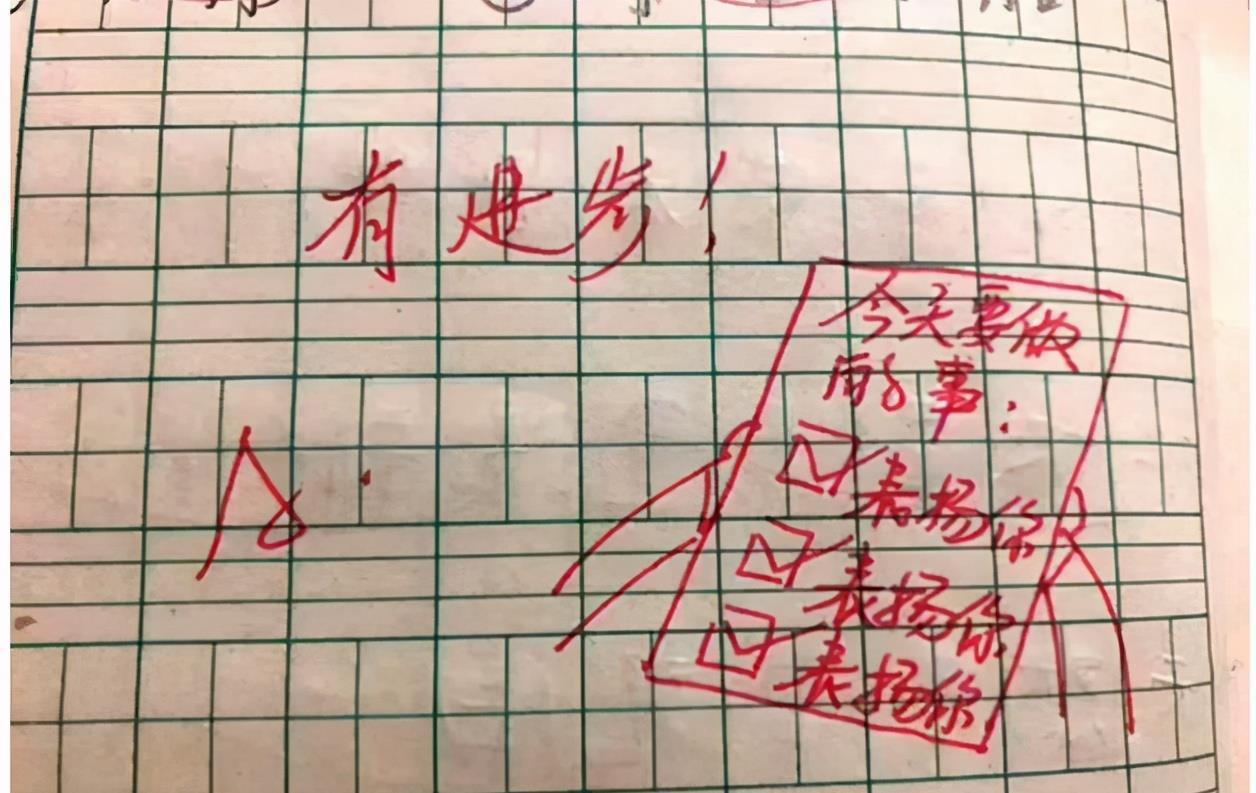 有进步!
今天要做
的事:
表扬你
表扬你
表扬你